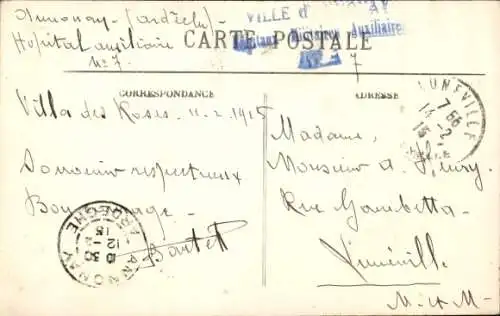 Annonay - (Ardèche) -
Hopital auxiliaire
N° 7.
VILLE d'
Hopitaux Militaires Auxiliaires
N° 7
CARTE POSTALE
CORRESPONDANCE
ADRESSE
LUNEVILLE
7 55
14 -2
15
Villa des Roses - 11-2-1915
Souvenir respectueux
Bon
Bartet
ANNONAY
ARDECHE
12 - 2
15
Madame,
Monsieur A. Henry
Rue Gambetta -
Lunéville
M - et M -